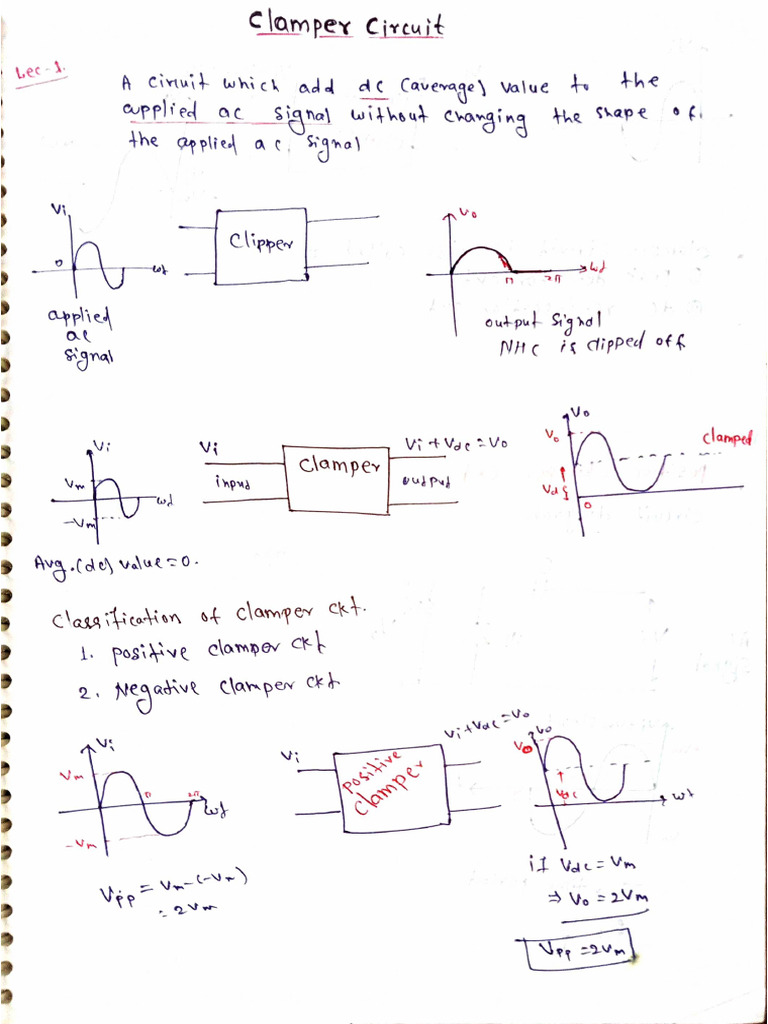 Clamper Circuit
Lec-1.
A circuit which add dc (average) value to the
applied ac signal without changing the shape of
the applied ac signal
Vi
0
ωt
applied
ac
signal
Clipper
Vo
π
2π
ωt
output signal
NHC is clipped off
Vi
Vm
-Vm
ωt
Vi
input
Clamper
Vi + Vdc = Vo
output
Vo
Vo
clamped
0
Avg.(dc) value = 0.
Classification of clamper ckt.
1. Positive clamper ckt
2. Negative clamper ckt
Vi
Vm
-Vm
π
2π
ωt
Vpp = Vm-(-Vm)
= 2Vm
Vi
Positive
Clamper
Vi + Vdc = Vo
Vo
Vdc
ωt
if Vdc = Vm
⇒ Vo = 2Vm
Vpp = 2Vm